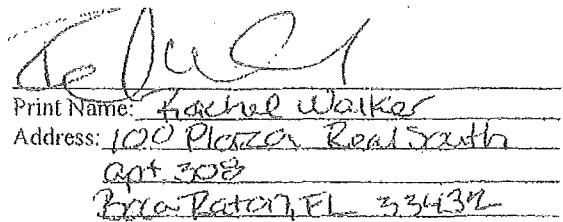 Print Name: Rachel Walker
Address: 100 Plaza Real South
apt 308
Boca Raton, FL 33432